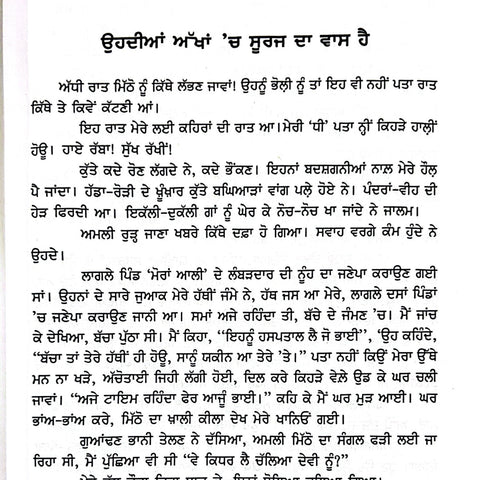 ਉਹਦੀਆਂ ਅੱਖਾਂ ’ਚ ਸੂਰਜ ਦਾ ਵਾਸ ਹੈ
ਅੱਧੀ ਰਾਤ ਮਿੱਠੋ ਨੂੰ ਕਿੱਥੇ ਲੱਭਣ ਜਾਵਾਂ! ਉਹਨੂੰ ਭੋਲੀ ਨੂੰ ਤਾਂ ਇਹ ਵੀ ਨਹੀਂ ਪਤਾ ਰਾਤ
ਕਿੱਥੇ ਤੇ ਕਿਵੇਂ ਕੱਟਣੀ ਆਂ।
ਇਹ ਰਾਤ ਮੇਰੇ ਲਈ ਕਹਿਰਾਂ ਦੀ ਰਾਤ ਆ।ਮੇਰੀ ‘ਧੀ’ ਪਤਾ ਨ੍ਹੀਂ ਕਿਹੜੇ ਹਾਲੀਂ
ਹੋਊ। ਹਾਏ ਰੱਬਾ! ਸੁੱਖ ਰੱਖੀਂ!
ਕੁੱਤੇ ਕਦੇ ਰੋਣ ਲੱਗਦੇ ਨੇ, ਕਦੇ ਭੌਂਕਣ। ਇਹਨਾਂ ਬਦਸ਼ਗਨੀਆਂ ਨਾਲ ਮੇਰੇ ਹੌਲ
ਪੈ ਜਾਂਦਾ। ਹੱਡਾ-ਰੋੜੀ ਦੇ ਖ਼ੂੰਖ਼ਾਰ ਕੁੱਤੇ ਬਘਿਆੜਾਂ ਵਾਂਗ ਪਲੇ ਹੋਏ ਨੇ। ਪੰਦਰਾਂ-ਵੀਹ ਦੀ
ਹੇੜ ਫਿਰਦੀ ਆ। ਇਕੱਲੀ-ਦੁਕੱਲੀ ਗਾਂ ਨੂੰ ਘੇਰ ਕੇ ਨੋਚ-ਨੋਚ ਖਾ ਜਾਂਦੇ ਨੇ ਜਾਲਮ।
ਅਮਲੀ ਰੁੜ੍ਹ ਜਾਣਾ ਖਬਰੇ ਕਿੱਥੇ ਦਫ਼ਾ ਹੋ ਗਿਆ। ਸਵਾਹ ਵਰਗੇ ਕੰਮ ਹੁੰਦੇ ਨੇ
ਉਹਦੇ।
ਲਾਗਲੇ ਪਿੰਡ ‘ਮੋਰਾਂ ਆਲੀ’ ਦੇ ਲੰਬੜਦਾਰ ਦੀ ਨੂੰਹ ਦਾ ਜਣੇਪਾ ਕਰਾਉਣ ਗਈ
ਸਾਂ। ਉਹਨਾਂ ਦੇ ਸਾਰੇ ਜੁਆਕ ਮੇਰੇ ਹੱਥੀਂ ਜੰਮੇ ਨੇ, ਹੱਥ ਜਸ ਆ ਮੇਰੇ, ਲਾਗਲੇ ਦਸਾਂ ਪਿੰਡਾਂ
’ਚ ਜਣੇਪਾ ਕਰਾਉਣ ਜਾਨੀ ਆ। ਸਮਾਂ ਅਜੇ ਰਹਿੰਦਾ ਤੀ, ਬੱਚੇ ਦੇ ਜੰਮਣ ’ਚ। ਮੈਂ ਜਾਂਚ
ਕੇ ਦੇਖਿਆ, ਬੱਚਾ ਪੁੱਠਾ ਸੀ। ਮੈਂ ਕਿਹਾ, “ਇਹਨੂੰ ਹਸਪਤਾਲ ਲੈ ਜੋ ਭਾਈ”, ‘ਉਹ ਕਹਿੰਦੇ,
“ਬੱਚਾ ਤਾਂ ਤੇਰੇ ਹੱਥੀਂ ਹੀ ਹੋਊ, ਸਾਨੂੰ ਯਕੀਨ ਆ ਤੇਰੇ ’ਤੇ।” ਪਤਾ ਨਹੀਂ ਕਿਉਂ ਮੇਰਾ ਉੱਥੇ
ਮਨ ਨਾ ਖੜੇ, ਅੱਚੋਤਾਈ ਜਿਹੀ ਲੱਗੀ ਹੋਈ, ਦਿਲ ਕਰੇ ਕਿਹੜੇ ਵੇਲੇ ਉਡ ਕੇ ਘਰ ਚਲੀ
ਜਾਵਾਂ। “ਅਜੇ ਟਾਇਮ ਰਹਿੰਦਾ ਫੇਰ ਆਜੂੰ ਭਾਈ।” ਕਹਿ ਕੇ ਮੈਂ ਘਰ ਮੁੜ ਆਈ। ਘਰ
ਭਾਂਅ-ਭਾਂਅ ਕਰੇ, ਮਿੱਠੋ ਦਾ ਖ਼ਾਲੀ ਕੀਲਾ ਦੇਖ ਮੇਰੇ ਖਾਨਿਓਂ ਗਈ।
ਗੁਆਂਢਣ ਭਾਨੀ ਤੇਲਣ ਨੇ ਦੱਸਿਆ, ਅਮਲੀ ਮਿੱਠੋ ਦਾ ਸੰਗਲ ਫੜੀ ਲਈ ਜਾ
ਰਿਹਾ ਸੀ, ਮੈਂ ਪੁੱਛਿਆ ਵੀ ਸੀ “ਵੇ ਕਿਧਰ ਲੈ ਚੱਲਿਆ ਦੇਵੀ ਨੂੰ?”